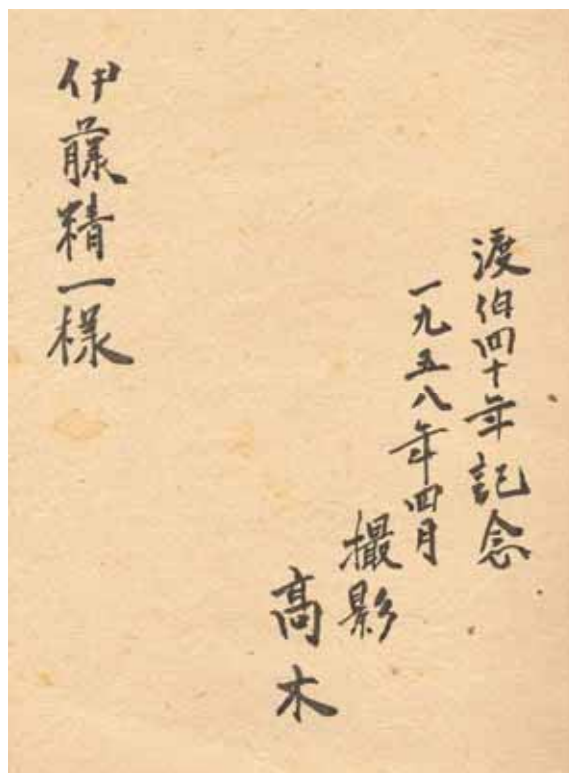 渡伯四十年記念
一九五八年四月
撮影
髙木
伊藤精一様